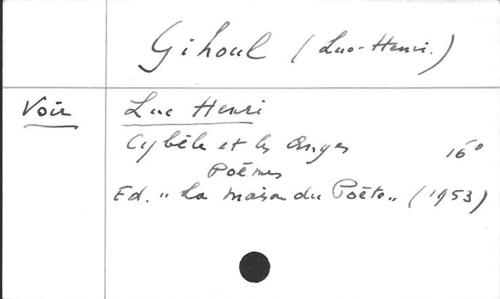 Gihoul (Luc-Henri.)
Voir Luc Henri
Cybèle et les Anges 16°
Poèmes
Ed. „ La maison du Poète „ (1953)